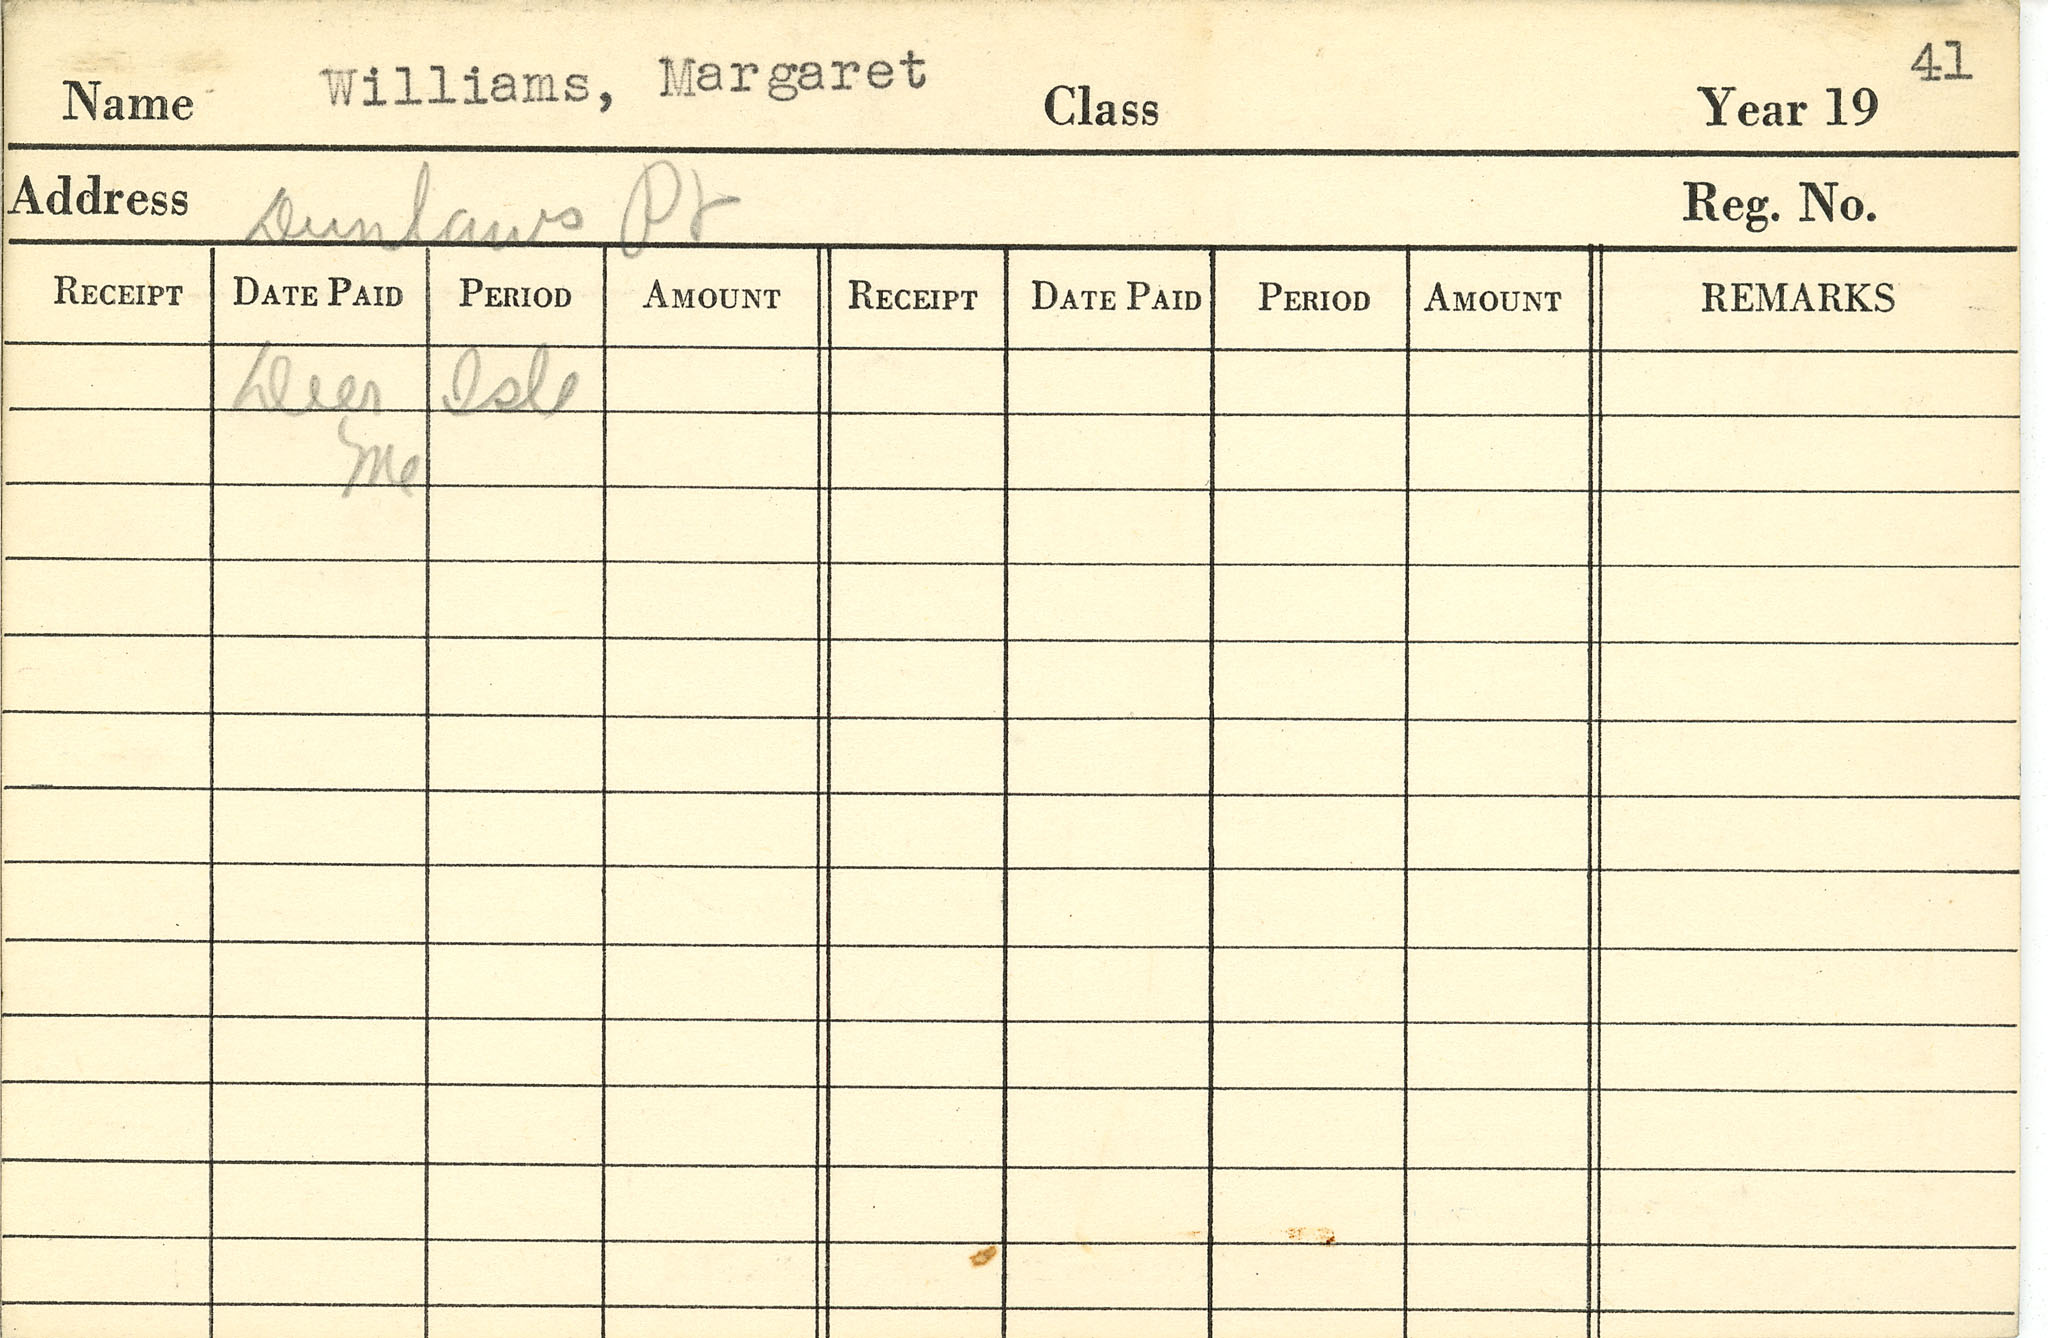 Name Williams, Margaret Class Year 19 41
Address Dunhams Pt Reg. No.
RECEIPT DATE PAID PERIOD AMOUNT RECEIPT DATE PAID PERIOD AMOUNT REMARKS
Deer Isle
Me